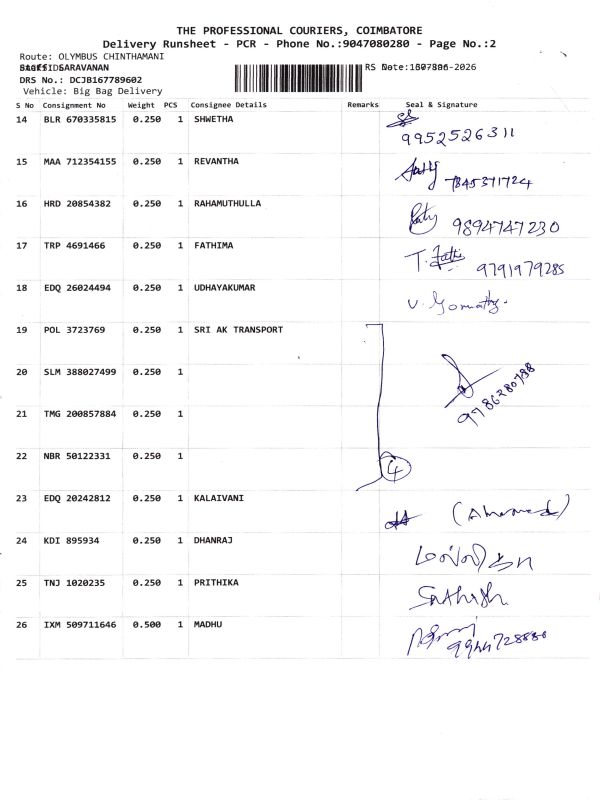 THE PROFESSIONAL COURIERS, COIMBATORE
Delivery Runsheet - PCR - Phone No.:9047080280 - Page No.:2
Route: OLYMBUS CHINTHAMANI
SARAVANAN
DRS No.: DCJB167789602
Vehicle: Big Bag Delivery
S No Consignment No Weight PCS Consignee Details Remarks Seal & Signature
14 BLR 670335815 0.250 1 SHWETHA
9952526311
15 MAA 712354155 0.250 1 REVANTHA
7845371724
16 HRD 20854382 0.250 1 RAHAMUTHULLA
9894747230
17 TRP 4691466 0.250 1 FATHIMA T. Fathi
9791979285
18 EDQ 26024494 0.250 1 UDHAYAKUMAR U. Gomathy.
19 POL 3723769 0.250 1 SRI AK TRANSPORT
20 SLM 388027499 0.250 1
9786280798
21 TMG 200857884 0.250 1
22 NBR 50122331 0.250 1 4
23 EDQ 20242812 0.250 1 KALAIVANI (Ahamed)
24 KDI 895934 0.250 1 DHANRAJ
25 TNJ 1020235 0.250 1 PRITHIKA Sathish
26 IXM 509711646 0.500 1 MADHU
9944728880